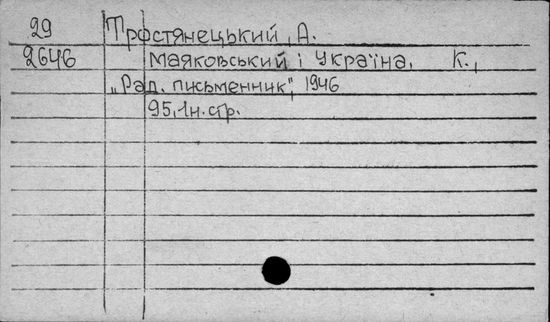 29 Тростянецький, А.
2646 Маяковський і Україна. К.,
„Рад. письменник", 1946
95,1н.стр.